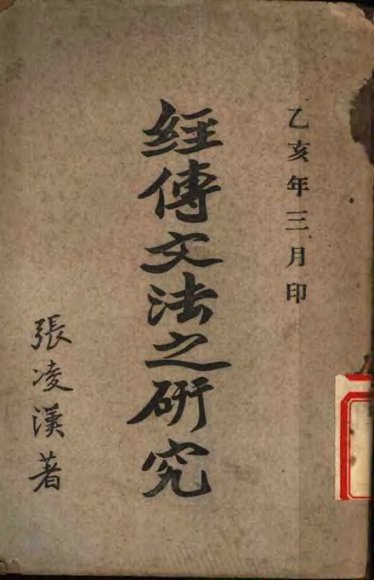 乙亥年三月印
經傳文法之研究
張凌漢著